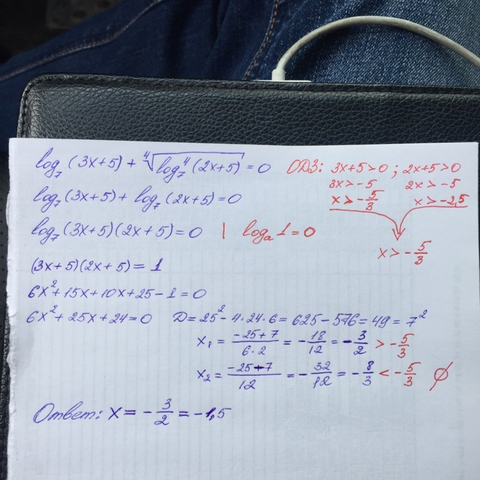 log₇(3x+5) + ⁴√(log₇⁴(2x+5)) = 0 ОДЗ: 3x+5>0 ; 2x+5>0
log₇(3x+5) + log₇(2x+5) = 0 3x>-5 2x>-5
x>-5/3 x>-2,5
log₇(3x+5)(2x+5) = 0 | logₐ1 = 0
x>-5/3
(3x+5)(2x+5) = 1
6x²+15x+10x+25-1=0
6x²+25x+24=0 D=25²-4·24·6=625-576=49=7²
x₁ = (-25+7)/(6·2) = -18/12 = -3/2 > -5/3
x₂ = (-25-7)/12 = -32/12 = -8/3 < -5/3 ∅
Ответ: x = -3/2 = -1,5